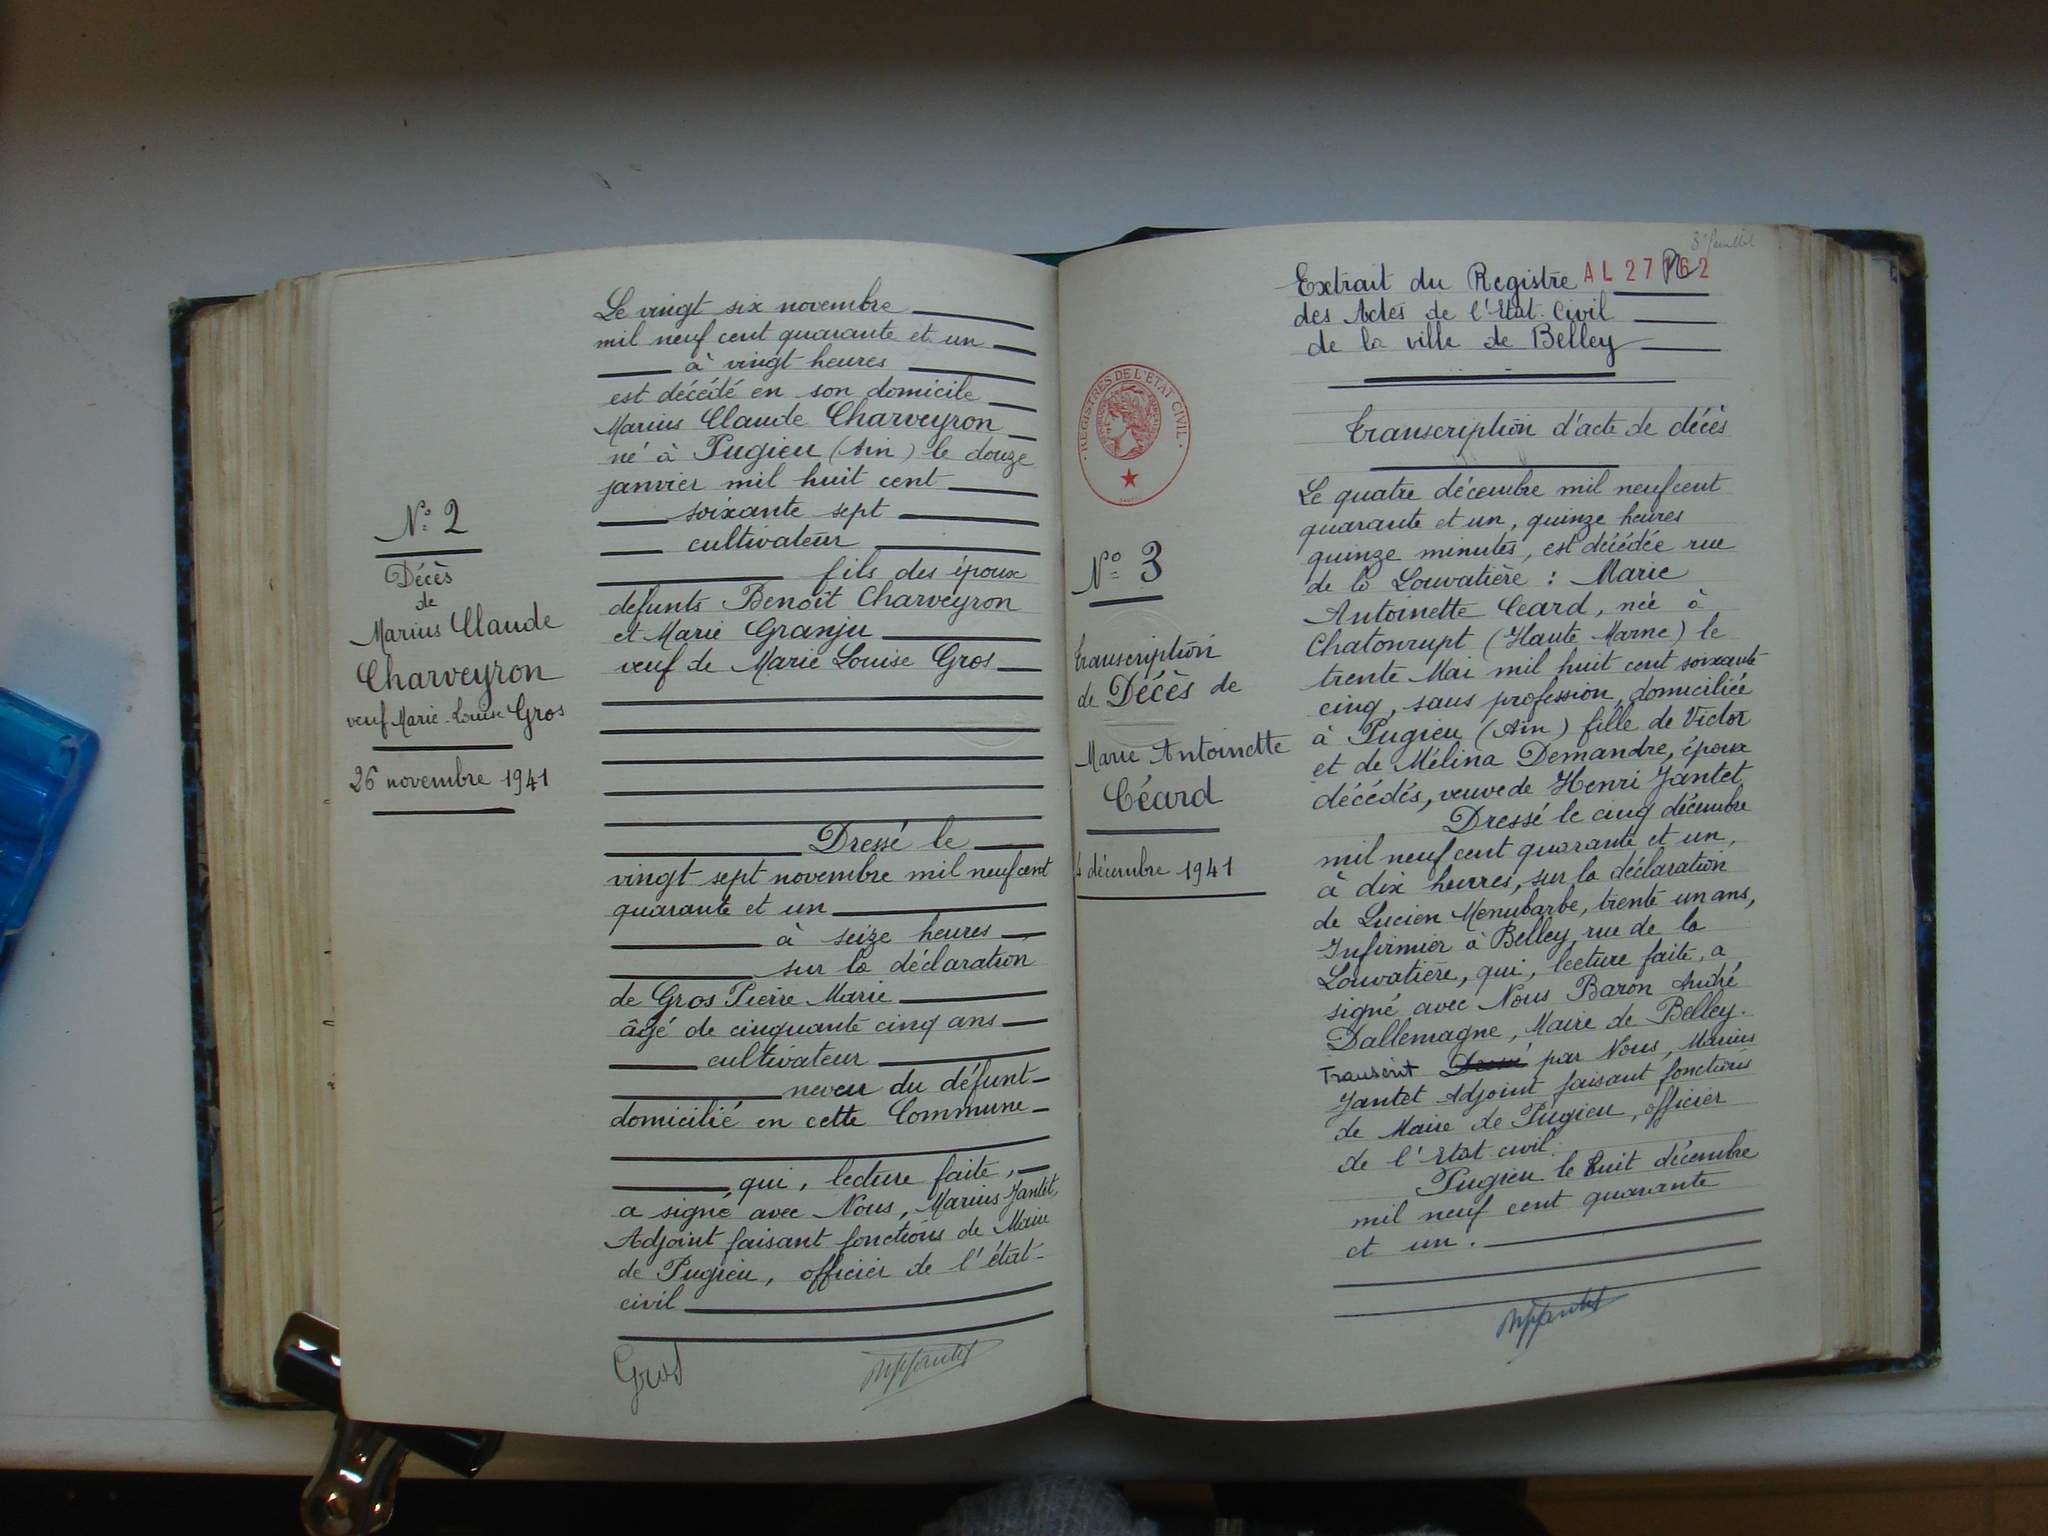 N° 2
Décès
de
Marius Claude
Charveyron
veuf Marie-Louise Gros
26 novembre 1941
Le vingt six novembre
mil neuf cent quarante et un
à vingt heures
est décédé en son domicile
Marius Claude Charveyron
né à Pugieu (Ain) le douze
janvier mil huit cent
soixante sept
cultivateur
fils des époux
defunts Benoît Charveyron
et Marie Granju
veuf de Marie Louise Gros
Dressé le
vingt sept novembre mil neuf cent
quarante et un
à seize heures
sur la déclaration
de Gros Pierre Marie
âgé de cinquante cinq ans
cultivateur
neveu du défunt
domicilié en cette Commune
qui, lecture faite,
a signé avec Nous, Marius Jantet,
Adjoint faisant fonctions de Maire
de Pugieu, officier de l'état-
civil
Gros
AL 27 162
Extrait du Registre
des Actes de l'Etat-Civil
de la ville de Belley
REGISTRES DE L'ETAT CIVIL
N° 3
Transcription
de Décès de
Marie Antoinette
Céard
4 décembre 1941
Transcription d'acte de décès
Le quatre décembre mil neuf cent
quarante et un, quinze heures
quinze minutes, est décédée rue
de la Louvatière : Marie
Antoinette Ceard, née à
Chatonrupt (Haute Marne) le
trente Mai mil huit cent soixante
cinq, sans profession, domiciliée
à Pugieu (Ain) fille de Victor
et de Mélina Demandre, époux
décédés, veuve de Henri Jantet
Dressé le cinq décembre
mil neuf cent quarante et un,
à dix heures, sur la déclaration
de Lucien Menubarbe, trente un ans,
Infirmier à Belley, rue de la
Louvatière, qui, lecture faite, a
signé avec Nous Baron André
Dallemagne, Maire de Belley.
Transcrit Dressé par Nous, Marius
Jantet Adjoint faisant fonctions
de Maire de Pugieu, officier
de l'Etat-civil.
Pugieu le huit décembre
mil neuf cent quarante
et un.